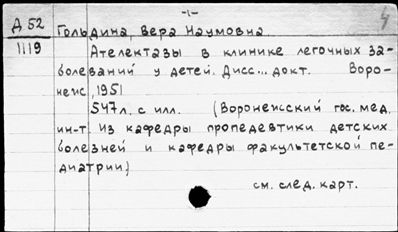 -1-
4
Д 52
1119
Гольдина, Вера Наумовна
Ателектазы в клинике легочных за-
болеваний у детей. Дисс... докт. Воро-
неж, 1951
547л. с илл. (Воронежский гос. мед.
ин-т. Из кафедры пропедевтики детских
болезней и кафедры факультетской пе-
диатрии)
см. след. карт.